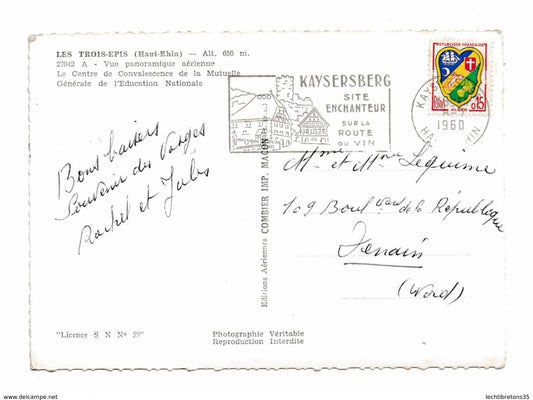 LES TROIS-EPIS (Haut-Rhin) — Alt. 650 m.
27042 A - Vue panoramique aérienne
Le Centre de Convalescence de la Mutuelle
Générale de l'Education Nationale
KAYSERSBERG
SITE
ENCHANTEUR
SUR LA
ROUTE
DU VIN
REPUBLIQUE FRANÇAISE
0,15
ALGER
1960
Bons baisers
Souvenir des Vosges
Rachel et Jules
Editions Aériennes COMBIER IMP. MACON
Mme et Mr Lequime
109 Boulvard de la République
Denain
(Nord)
"Licence S N Nº 59"
Photographie Véritable
Reproduction Interdite
https://www.delcampe.net
lechtibretons35